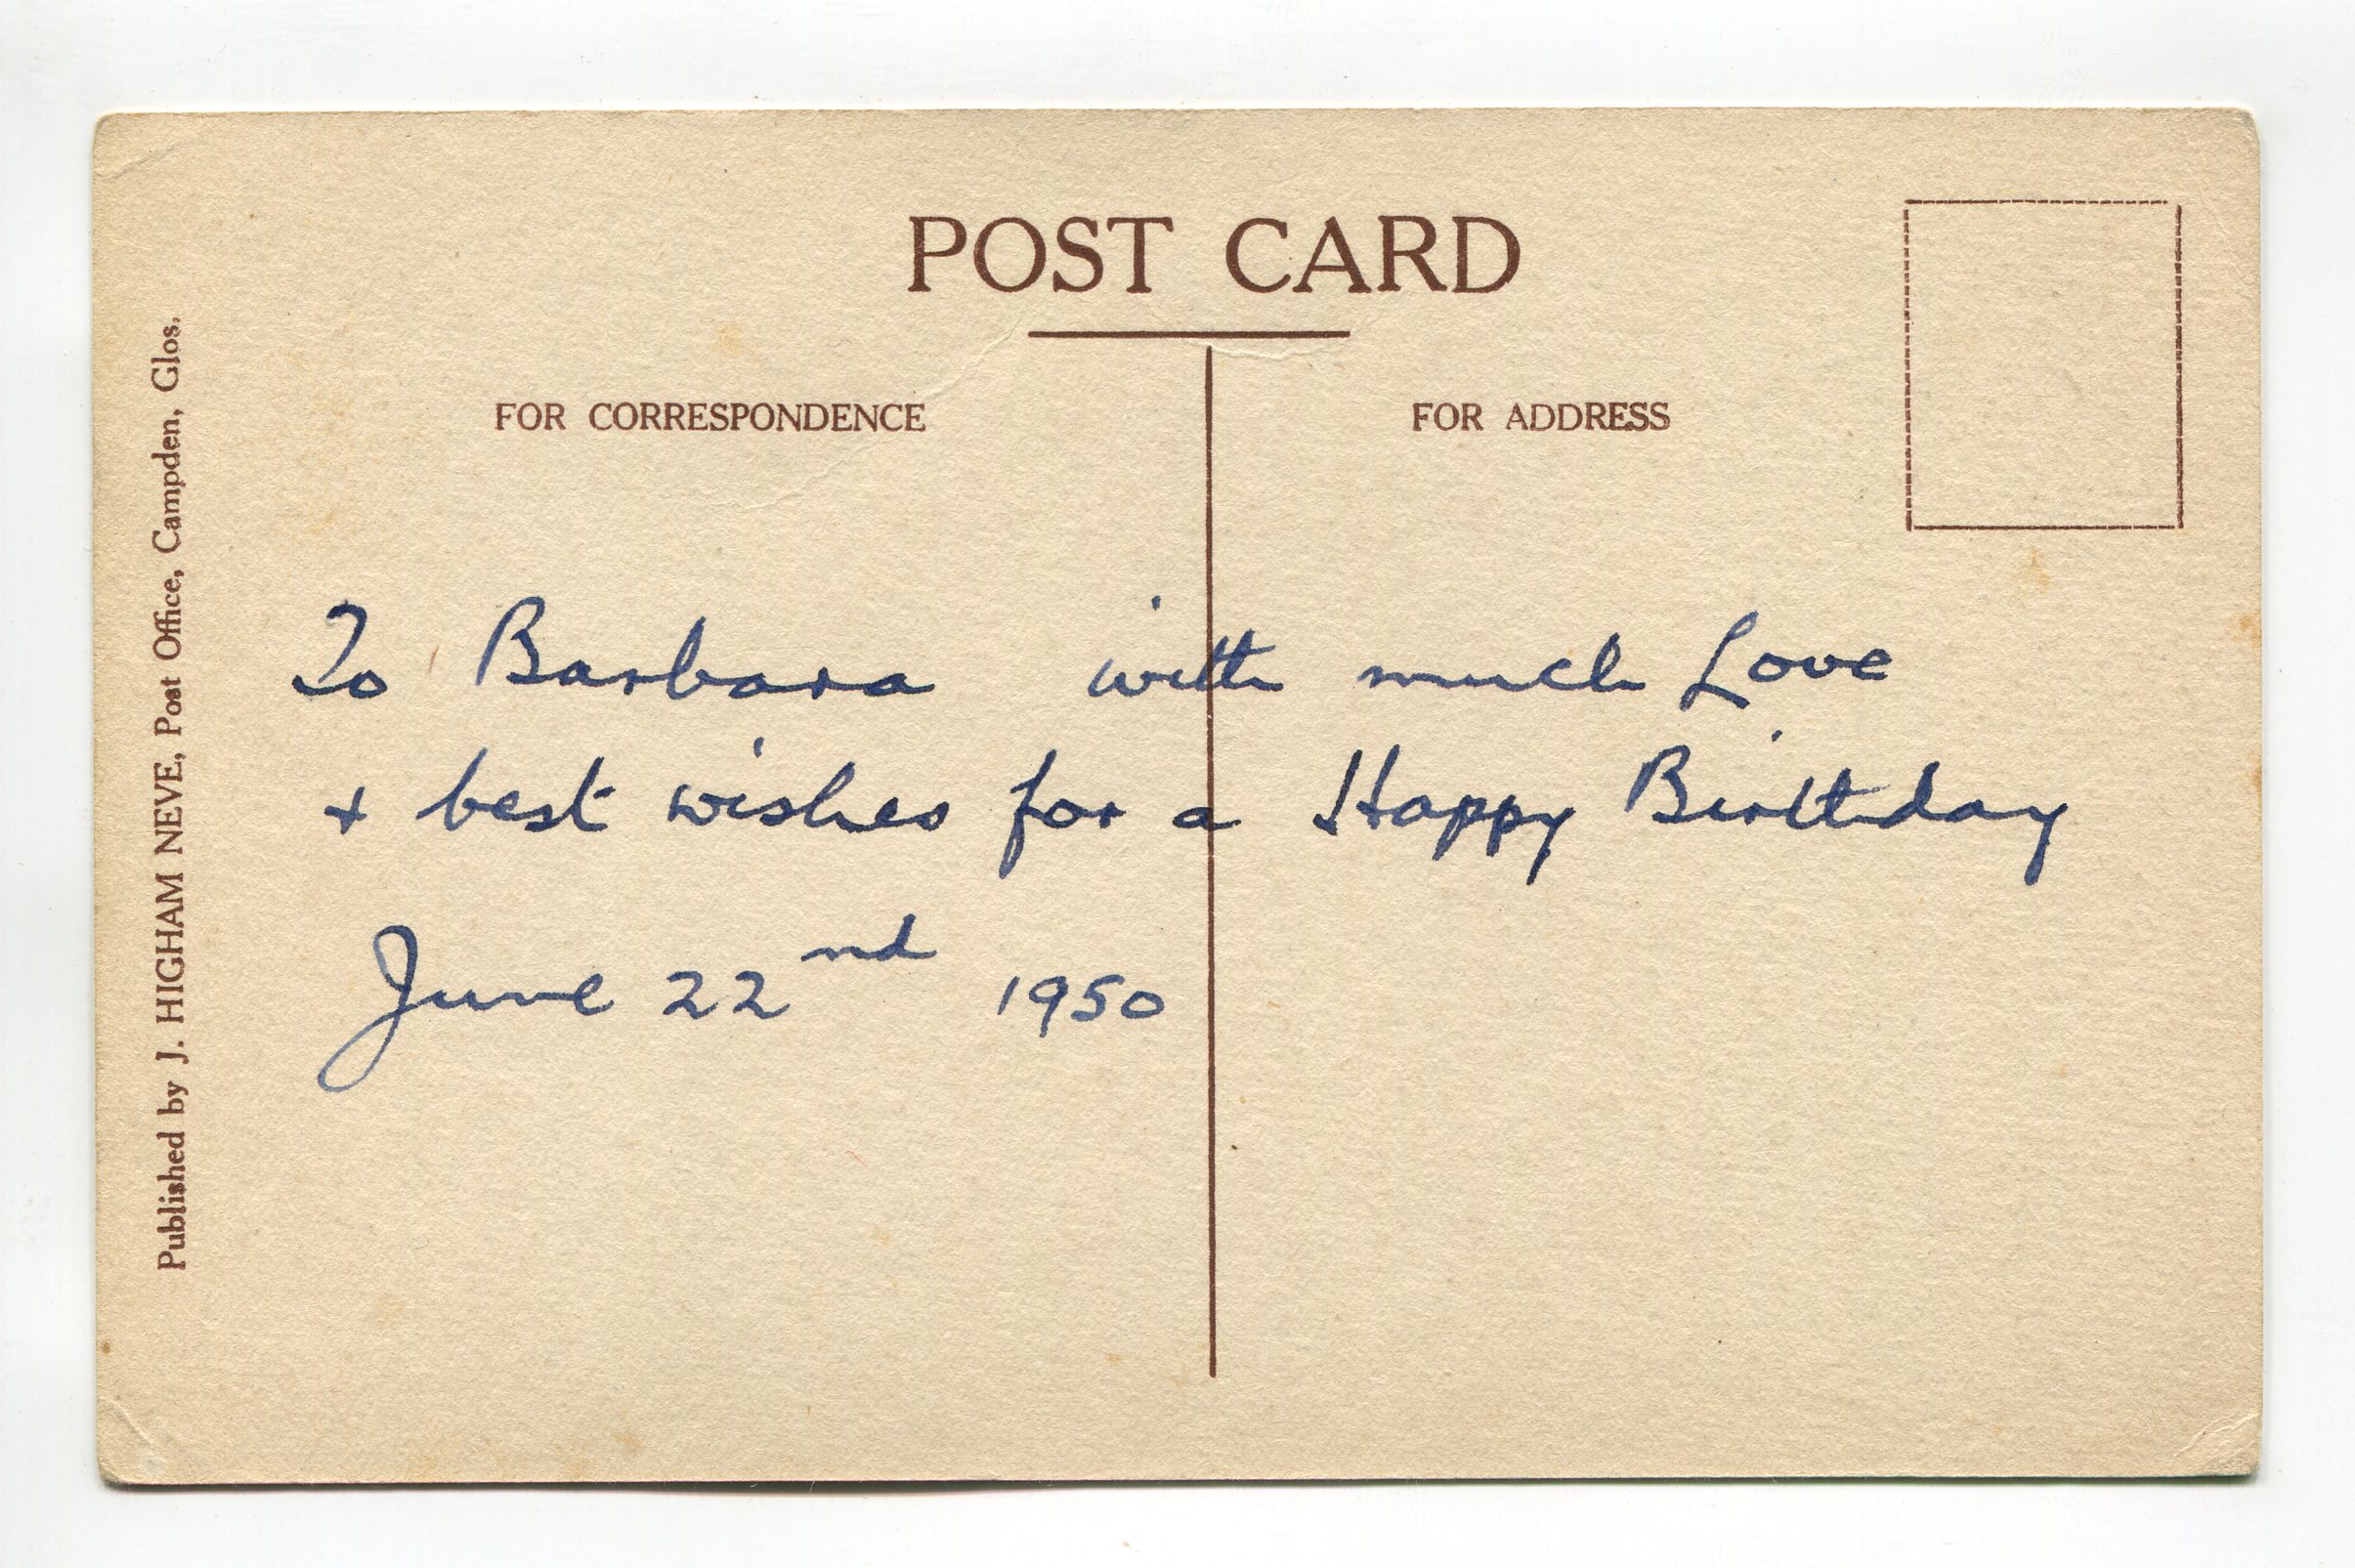 POST CARD
FOR CORRESPONDENCE
FOR ADDRESS
To Barbara with much Love
+ best wishes for a Happy Birthday
June 22nd 1950
Published by J. HIGHAM NEVE, Post Office, Campden, Glos.